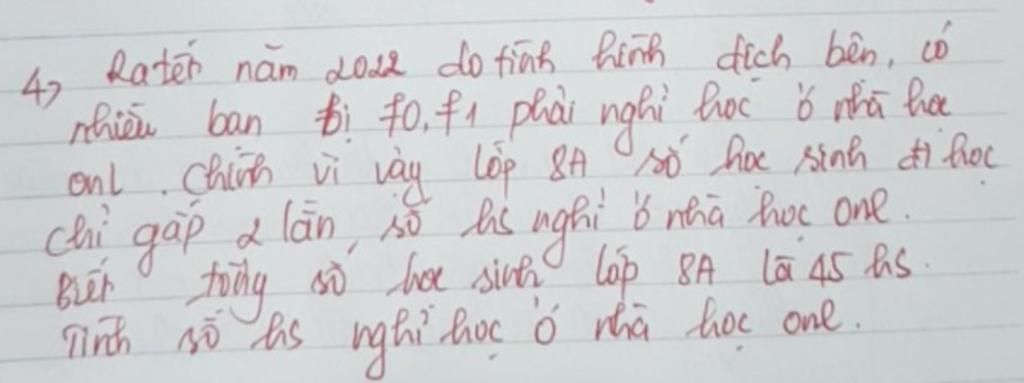 4) Ra tết năm 2022 do tình hình dịch bên, có
nhiều bạn bị f0, f1 phải nghỉ học ở nhà học
onl. Chính vì vậy lớp 8A số học sinh đi học
chỉ gấp 2 lần, số hs nghỉ ở nhà học onl.
Biết tổng số học sinh lớp 8A là 45 hs.
Tính số hs nghỉ học ở nhà học onl.